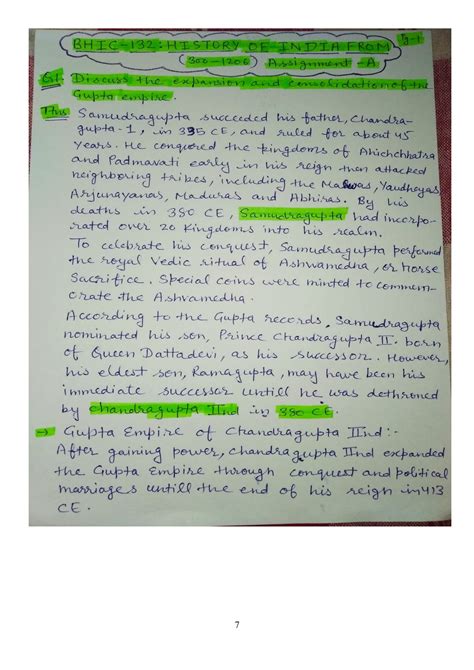 Pg-1
BHIC-132: HISTORY OF INDIA FROM
(300-1206) Assignment-A
Q1. Discuss the expansion and consolidation of the
Gupta empire.
Ans Samudragupta succeded his father, Chandra-
gupta-1, in 335 CE, and ruled for about 45
years. He conquered the kingdoms of Ahichchhatra
and Padmavati early in his reign then attacked
neighboring tribes, including the Malwas, Yaudheyas,
Arjunayanas, Maduras and Abhiras. By his
deaths in 380 CE, Samudragupta had incorpo-
rated over 20 Kingdoms into his realm.
To celebrate his conquest, Samudragupta performed
the royal Vedic ritual of Ashvamedha, or horse
Sacrifice. Special coins were minted to commem-
orate the Ashvamedha.
According to the Gupta records, Samudragupta
nominated his son, Prince Chandragupta II. born
of Queen Dattadevi, as his successor. However,
his eldest son, Ramagupta, may have been his
immediate successor untill he was dethroned
by chandragupta IInd in 380 CE.
→ Gupta Empire of Chandragupta IInd:-
After gaining power, Chandragupta IInd expanded
the Gupta Empire through conquest and political
marriages untill the end of his reign in 413
CE.
7